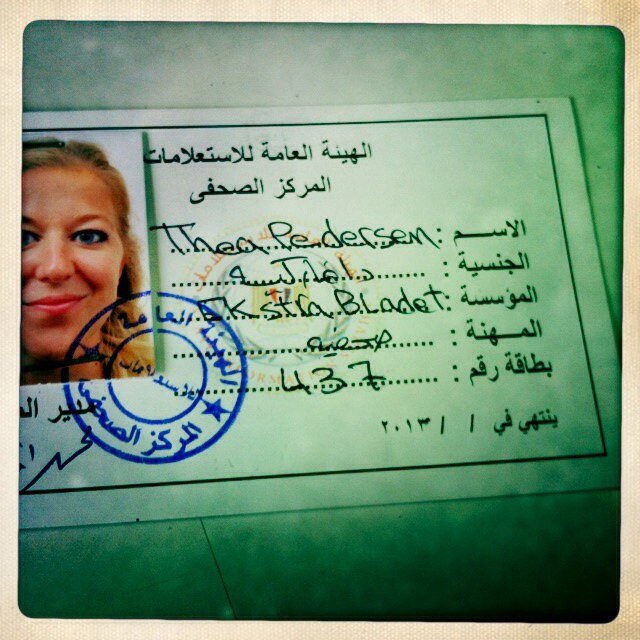 الهيئة العامة للاستعلامات
المركز الصحفى
الاســم : Thea Pedersen
الجنسية :
المؤسسة : Ekstra Bladet
المـهنة : صحفيه
بطاقة رقم : 437
ينتهي في / / ٢٠١٣
الهيئة العامة
للاستعلامات
المركز الصحفى
مدير